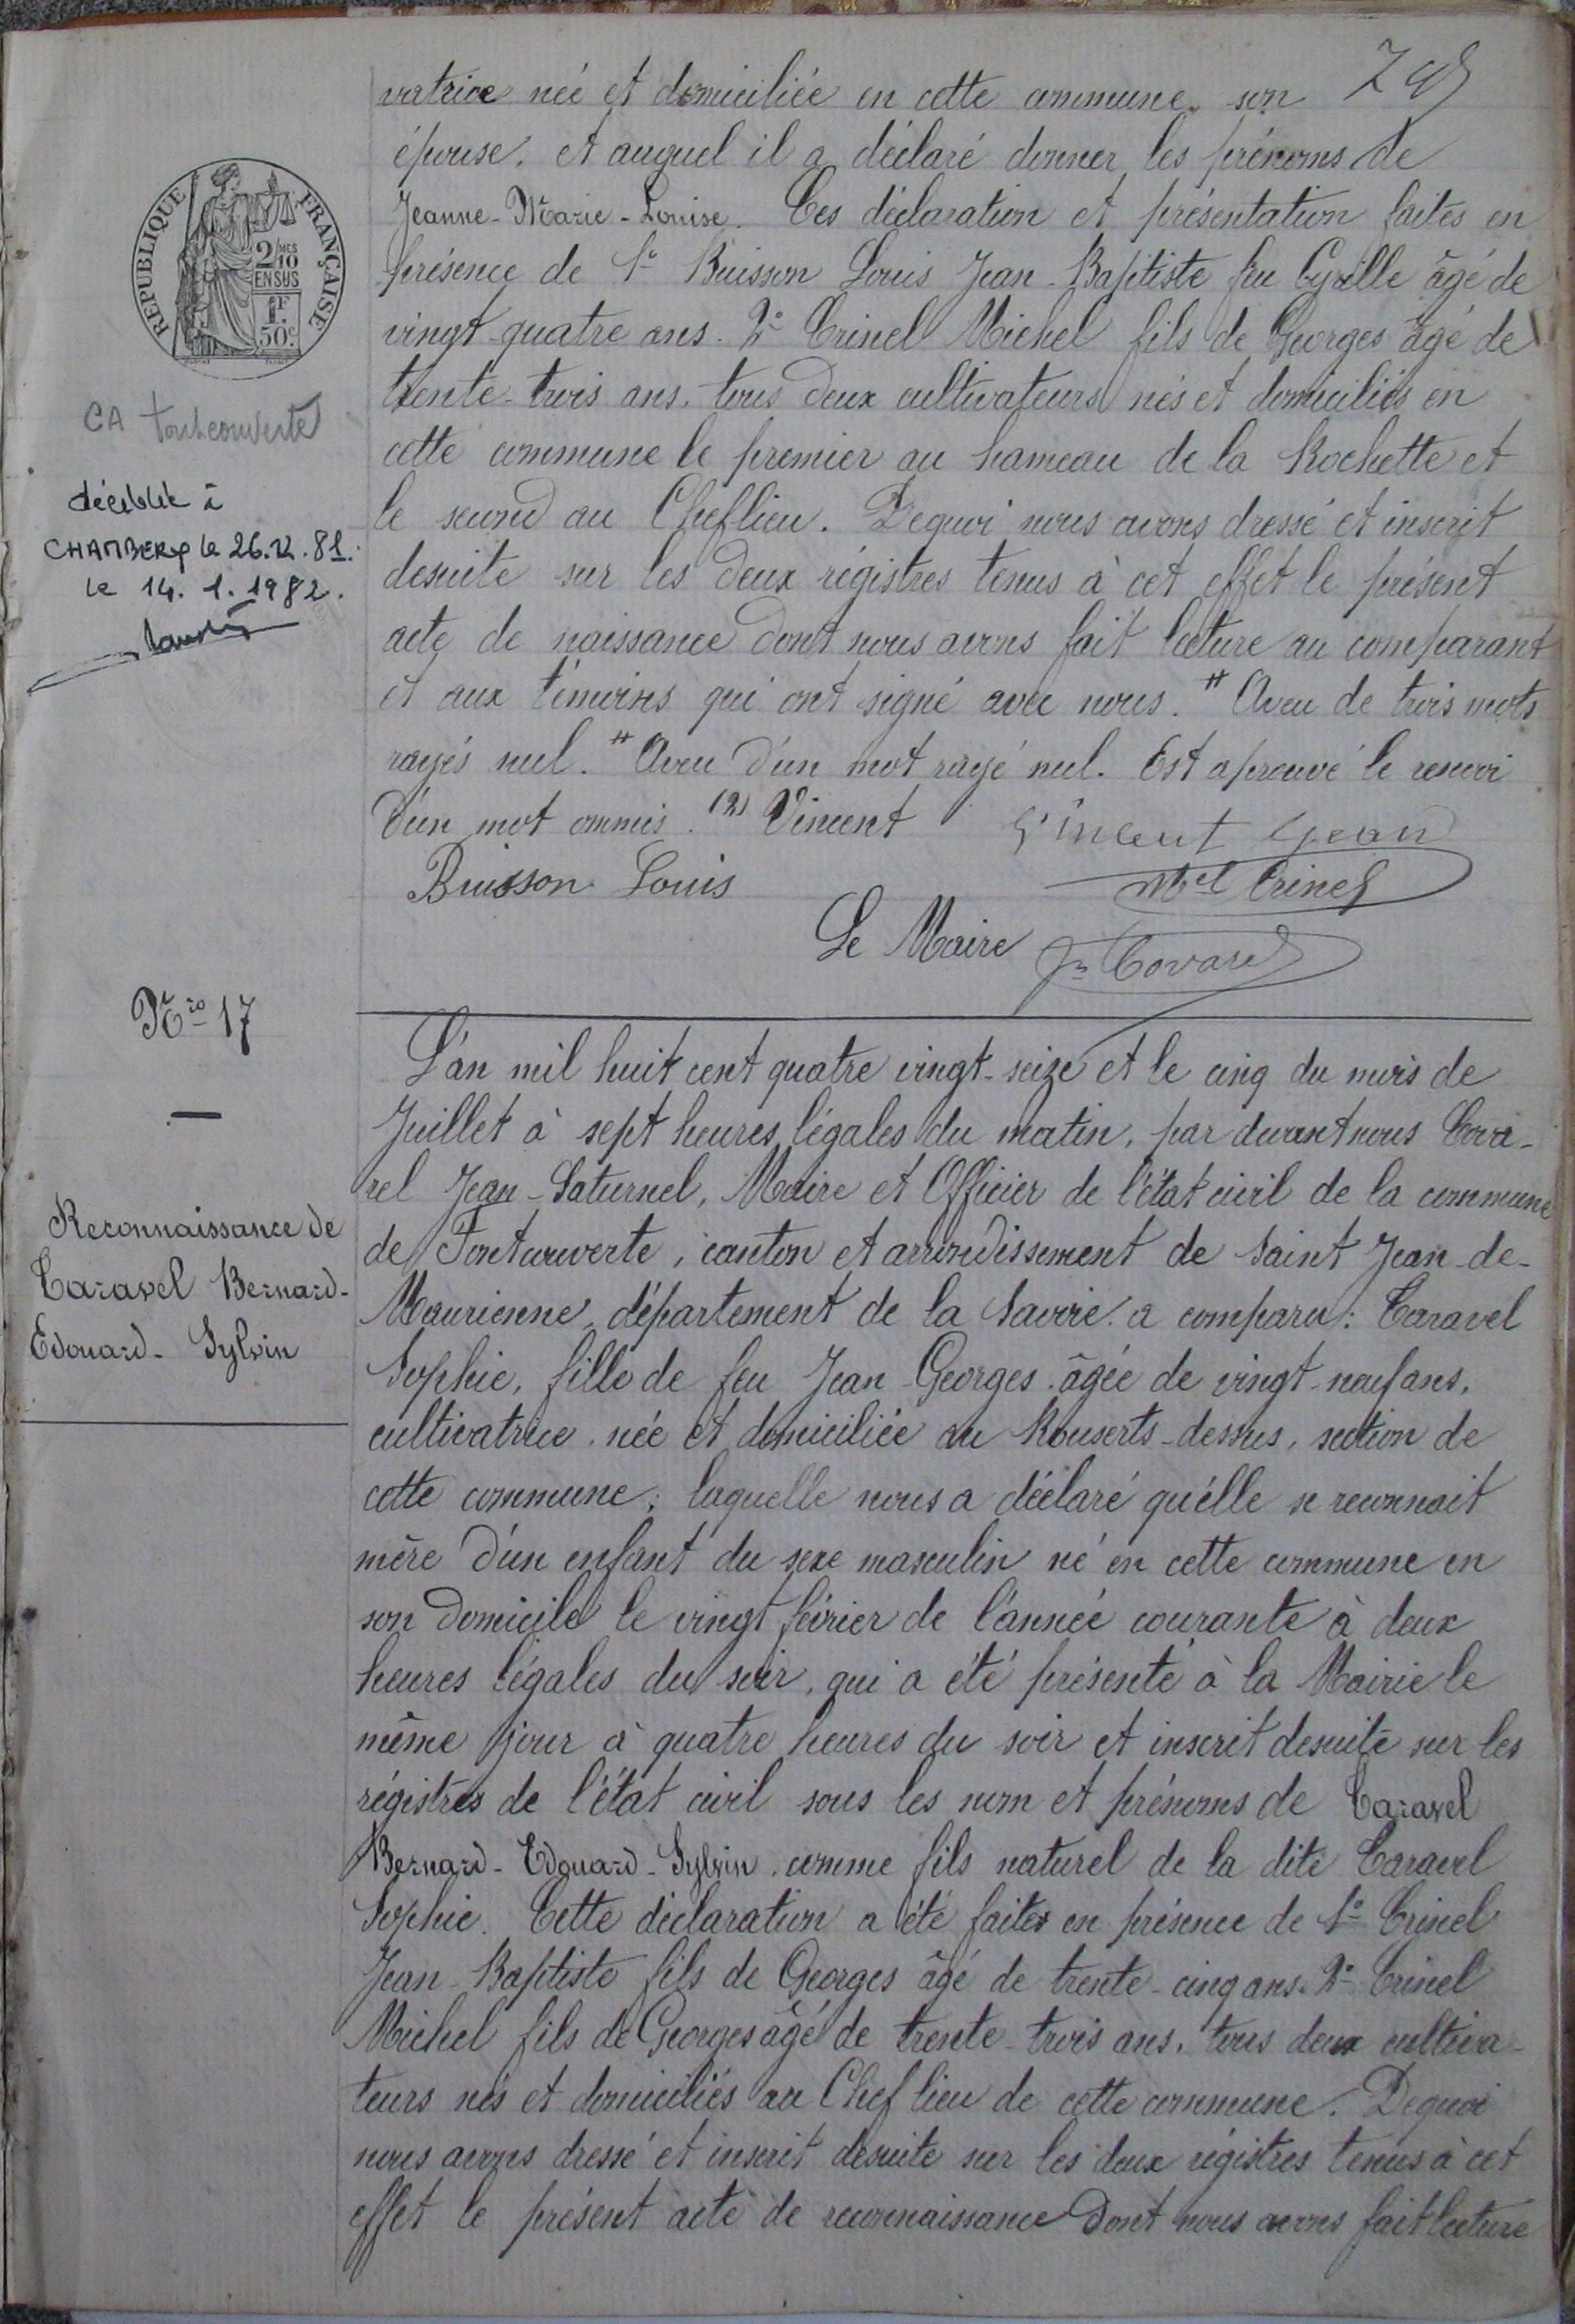 vatrice née et domiciliée en cette commune. son
épouse. et auquel il a déclaré donner les prénoms de
Jeanne-Marie-Louise. Ces déclaration et présentation faites en
présence de 1º Buisson Louis Jean-Baptiste feu Cyrille âgé de
vingt-quatre ans. 2º Crinel Michel fils de Georges âgé de
trente-trois ans. tous deux cultivateurs nés et domiciliés en
cette commune le premier au hameau de la Rochette et
le second au Cheflieu. Dequoi nous avons dressé et inscrit
desuite sur les deux régistres tenus à cet effet le présent
acte de naissance dont nous avons fait lecture au comparant
et aux témoins qui ont signé avec nous. # Aveu de trois mots
rayés nul. # Aveu d'un mot rayé nul. Est aprouvé le renvoi
d'un mot ommis. (2) Vincent Vincent Jean
Buisson Louis Mel Crinel
Le Maire Jn Covarel
REPUBLIQUE FRANÇAISE
2/10 MES
EN SUS
1F.
50c.
CA Fontcouverte
décédée à
CHAMBERY le 26.12.81.
le 14.1.1982.
Nro 17
Reconnaissance de
Caravel Bernard-
Edouard-Sylvin
L'an mil huit cent quatre vingt-seize et le cinq du mois de
Juillet à sept heures légales du matin, par devant nous Cova-
rel Jean-Saturnel, Maire et Officier de l'état civil de la commune
de Fontcouverte, canton et arrondissement de Saint Jean-de-
Maurienne, département de la Savoie. a comparu: Caravel
Sophie, fille de feu Jean-Georges. âgée de vingt-neuf ans,
cultivatrice. née et domiciliée au Rouserts-dessus, section de
cette commune; laquelle nous a déclaré qu'élle se reconnait
mère d'un enfant du sexe masculin né en cette commune en
son domicile le vingt février de l'année courante à deux
heures légales du soir, qui a été présenté à la Mairie le
même jour à quatre heures du soir et inscrit desuite sur les
régistres de l'état civil sous les nom et prénoms de Caravel
Bernard-Edouard-Sylvin. comme fils naturel de la dite Caravel
Sophie. Cette déclaration a été faites en présence de 1º Crinel
Jean-Baptiste fils de Georges âgé de trente-cinq ans. 2º Crinel
Michel fils de Georges âgé de trente-trois ans, tous deux cultiva-
teurs nés et domiciliés au Chef lieu de cette commune. Dequoi
nous avons dressé et inscrit desuite sur les deux régistres tenus à cet
effet le présent acte de reconnaissance dont nous avons fait lecture